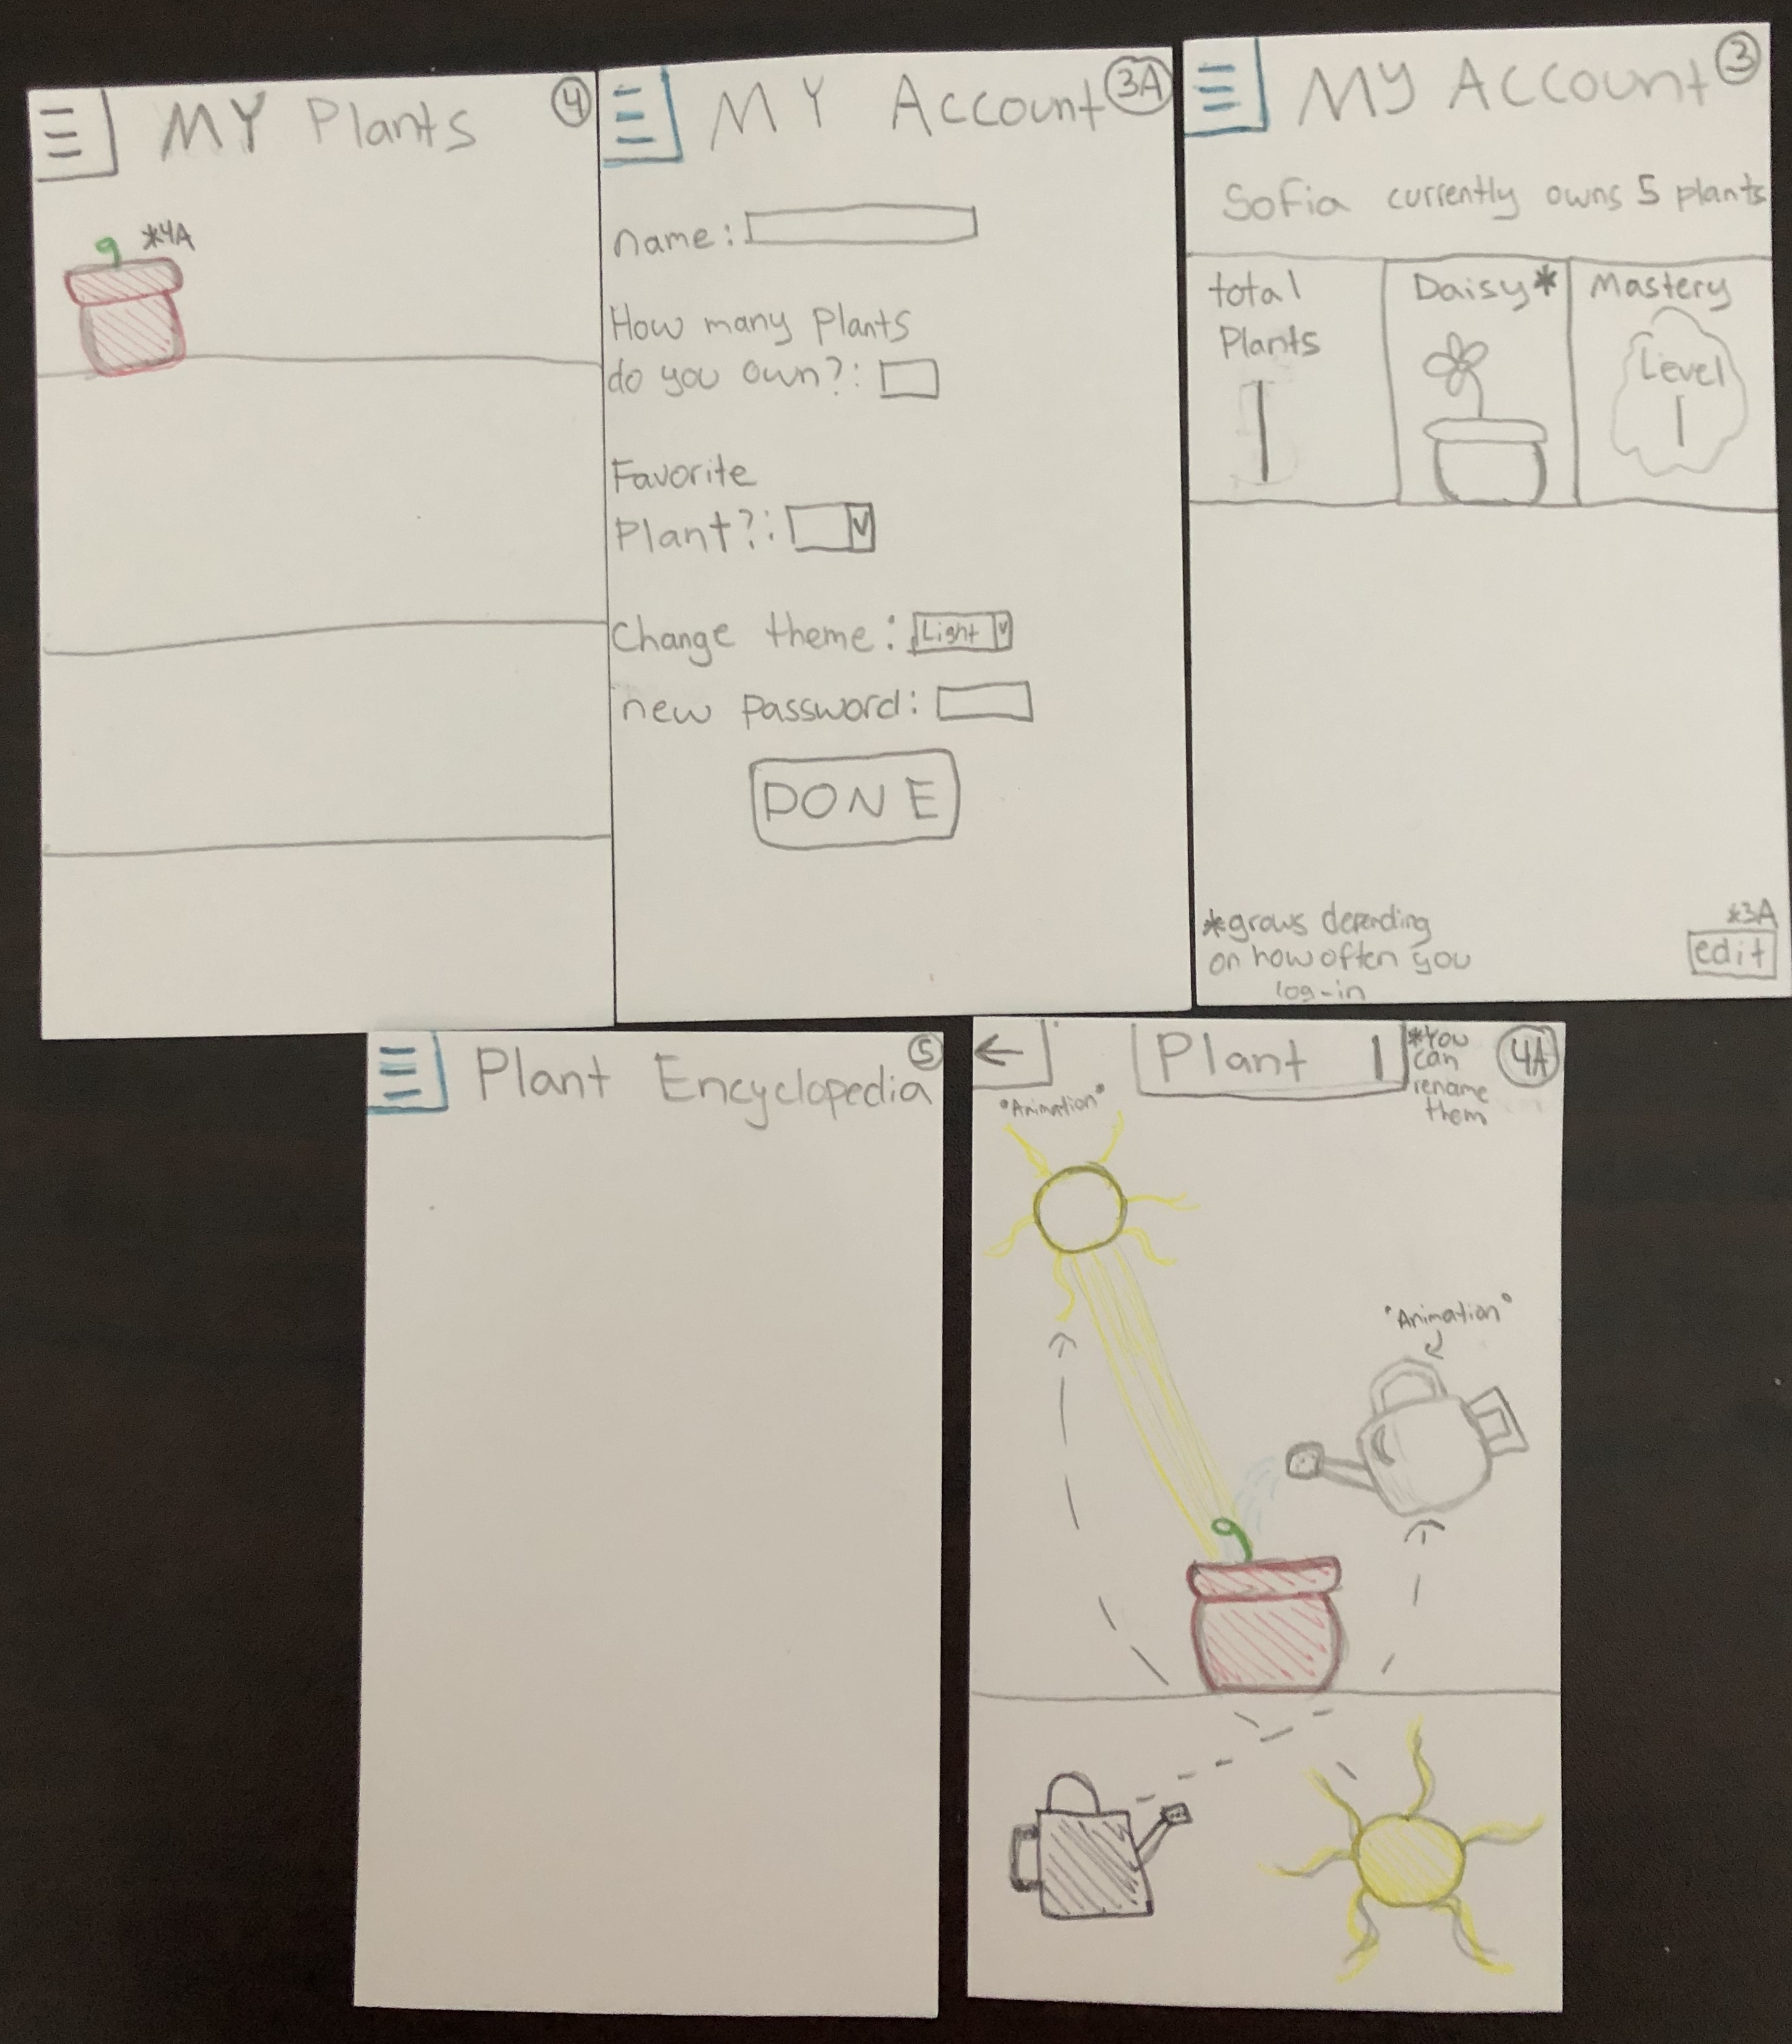 MY Plants
4
*4A
MY Account
3A
name:
How many plants
do you own?:
Favorite
Plant?:
Change theme: Light
new password:
DONE
MY Account
3
Sofia currently owns 5 plants
total
Plants
1
Daisy*
Mastery
Level
1
*grows depending
on how often you
log-in
*3A
edit
Plant Encyclopedia
5
Plant 1
*You
can
rename
them
4A
"Animation"
"Animation"